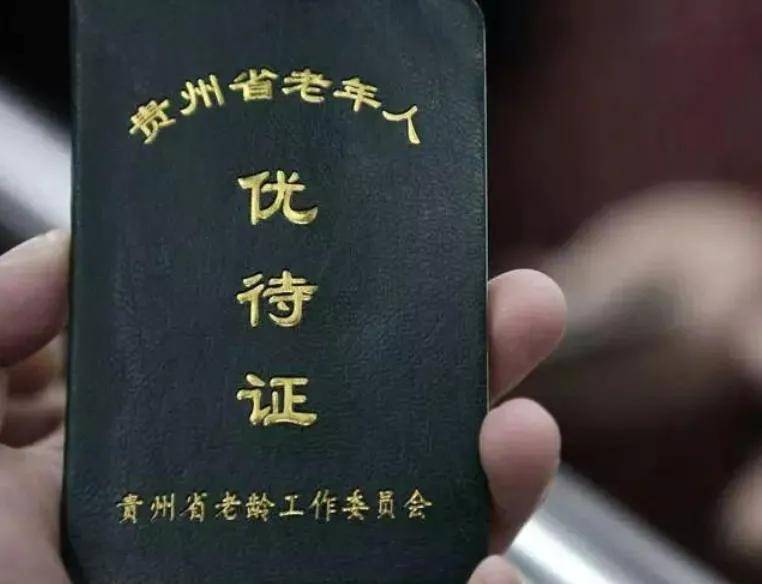 贵州省老年人
优
待
证
贵州省老龄工作委员会